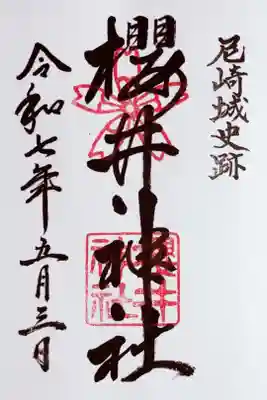 尼崎城史跡
櫻井神社
令和七年五月三日
櫻井
神社